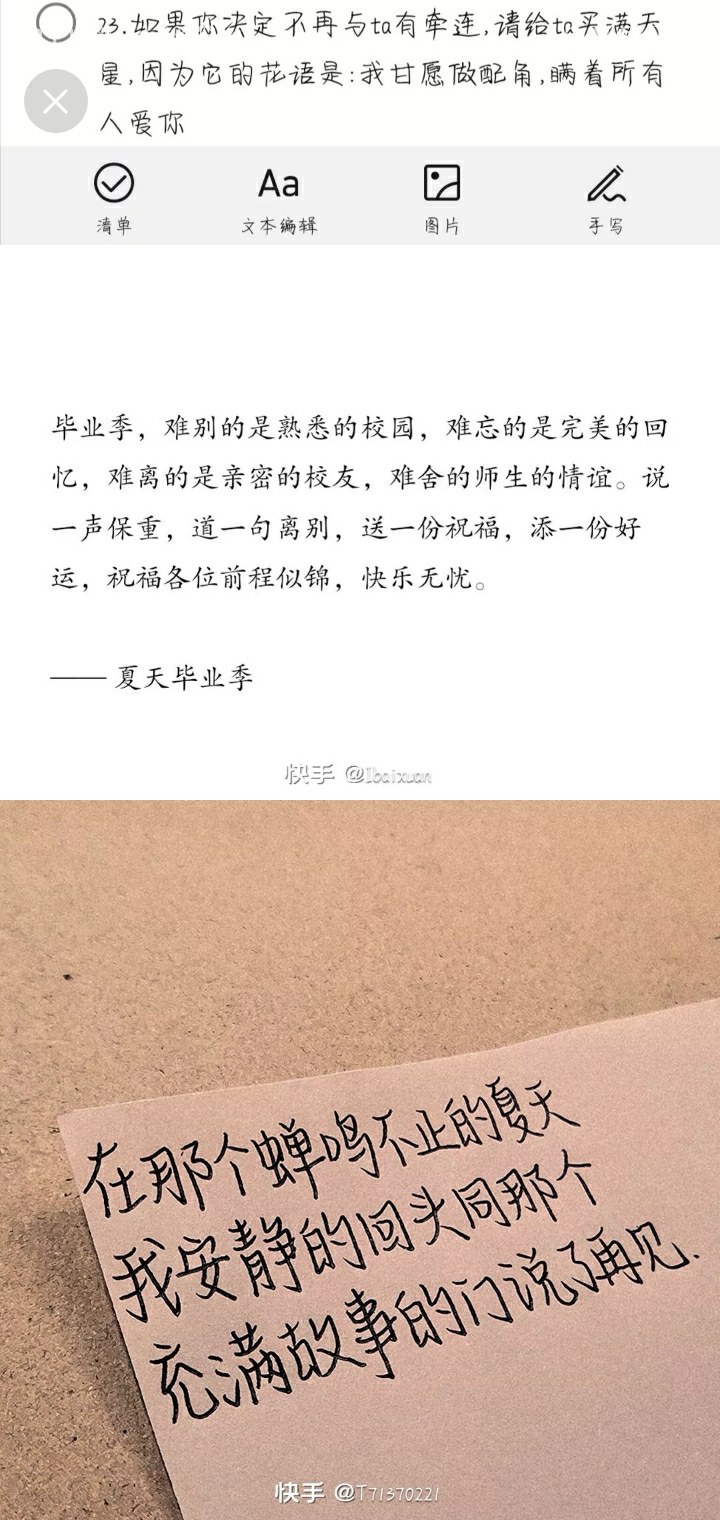 23.如果你决定不再与ta有牵连,请给ta买满天
星,因为它的花语是:我甘愿做配角,瞒着所有
人爱你
清单 文本编辑 图片 手写
毕业季，难别的是熟悉的校园，难忘的是完美的回
忆，难离的是亲密的校友，难舍的师生的情谊。说
一声保重，道一句离别，送一份祝福，添一份好
运，祝福各位前程似锦，快乐无忧。
—— 夏天毕业季
快手 @1baixuan
在那个蝉鸣不止的夏天
我安静的回头同那个
充满故事的门说了再见.
快手 @T71370221